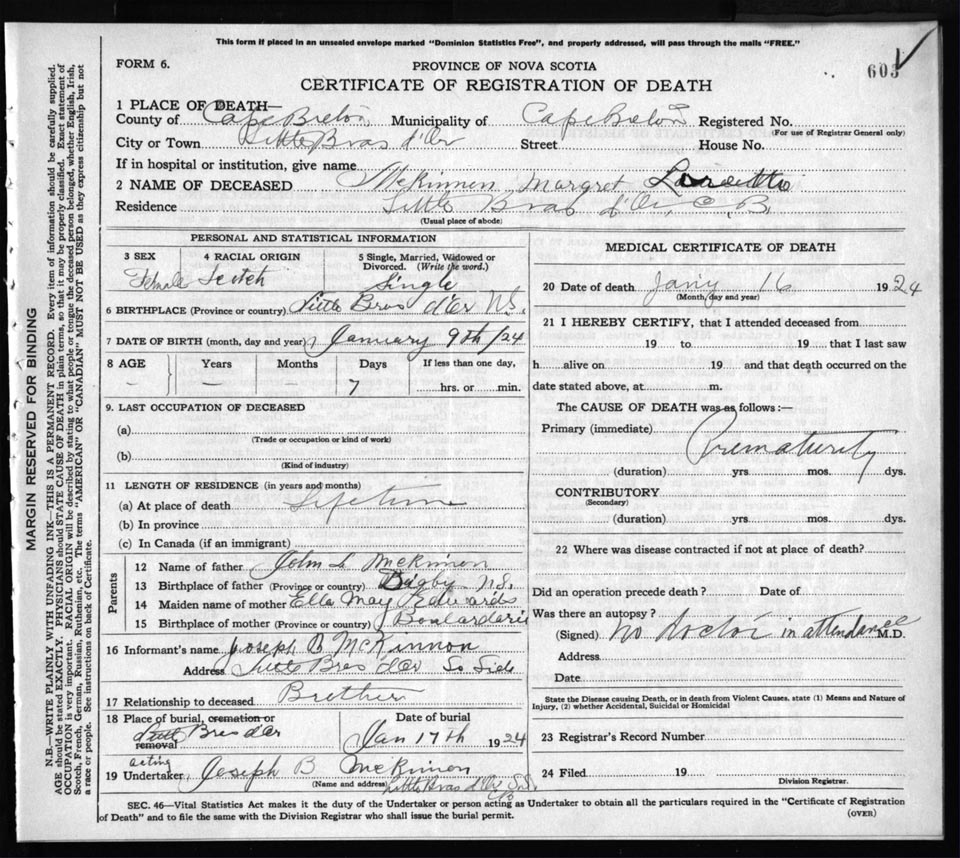 This form if placed in an unsealed envelope marked "Dominion Statistics Free", and properly addressed, will pass through the mails "FREE."
FORM 6.
603
PROVINCE OF NOVA SCOTIA
CERTIFICATE OF REGISTRATION OF DEATH
1 PLACE OF DEATH—
County of Cape Breton Municipality of Cape Breton Registered No.
(For use of Registrar General only)
City or Town Little Bras d'Or Street House No.
If in hospital or institution, give name
2 NAME OF DECEASED McKinnen Margret
Residence Little Bras d'Or, C.B.
(Usual place of abode)
PERSONAL AND STATISTICAL INFORMATION
3 SEX 4 RACIAL ORIGIN 5 Single, Married, Widowed or Divorced. (Write the word.)
Female Scotch Single
6 BIRTHPLACE (Province or country) Little Bras d'Or N.S.
7 DATE OF BIRTH (month, day and year) January 9th/24
8 AGE Years Months Days If less than one day,
— — 7 hrs. or min.
9. LAST OCCUPATION OF DECEASED
(a)
(Trade or occupation or kind of work)
(b)
(Kind of industry)
11 LENGTH OF RESIDENCE (in years and months)
(a) At place of death Lifetime
(b) In province
(c) In Canada (if an immigrant)
Parents
12 Name of father John L McKinnen
13 Birthplace of father (Province or country) Digby N.S.
14 Maiden name of mother Ella May Edwards
15 Birthplace of mother (Province or country) Boulardarie
16 Informant's name Joseph B McKinnon
Address Little Bras d'Or So Side
17 Relationship to deceased Brother
18 Place of burial, cremation or removal Date of burial
Little Bras d'Or Jan 17th 1924
acting
19 Undertaker Joseph B McKinnon
(Name and address) Little Bras d'Or
MEDICAL CERTIFICATE OF DEATH
20 Date of death Jany 16 1924
(Month, day and year)
21 I HEREBY CERTIFY, that I attended deceased from
19 to 19 that I last saw
h alive on 19 and that death occurred on the
date stated above, at m.
The CAUSE OF DEATH was as follows:—
Primary (immediate) Prematurity
(duration) yrs. mos. dys.
CONTRIBUTORY
(Secondary)
(duration) yrs. mos. dys.
22 Where was disease contracted if not at place of death?
Did an operation precede death? Date of
Was there an autopsy?
(Signed) no doctor in attendance M.D.
Address
Date
State the Disease causing Death, or in death from Violent Causes, state (1) Means and Nature of
Injury, (2) whether Accidental, Suicidal or Homicidal
23 Registrar's Record Number
24 Filed 19
Division Registrar.
SEC. 46—Vital Statistics Act makes it the duty of the Undertaker or person acting as Undertaker to obtain all the particulars required in the "Certificate of Registration
of Death" and to file the same with the Division Registrar who shall issue the burial permit.
(OVER)
MARGIN RESERVED FOR BINDING
N.B.—WRITE PLAINLY WITH UNFADING INK—THIS IS A PERMANENT RECORD. Every item of information should be carefully supplied.
AGE should be stated EXACTLY. PHYSICIANS should STATE CAUSE OF DEATH in plain terms, so that it may be properly classified. Exact statement of
OCCUPATION is very important. RACIAL ORIGIN will be described by stating to what people or tongue the deceased person belonged, whether English, Irish,
Scotch, French, German, Russian, Ruthenian, etc. The terms "AMERICAN" or "CANADIAN" MUST NOT BE USED as they express citizenship but not
a race or people. See instructions on back of Certificate.